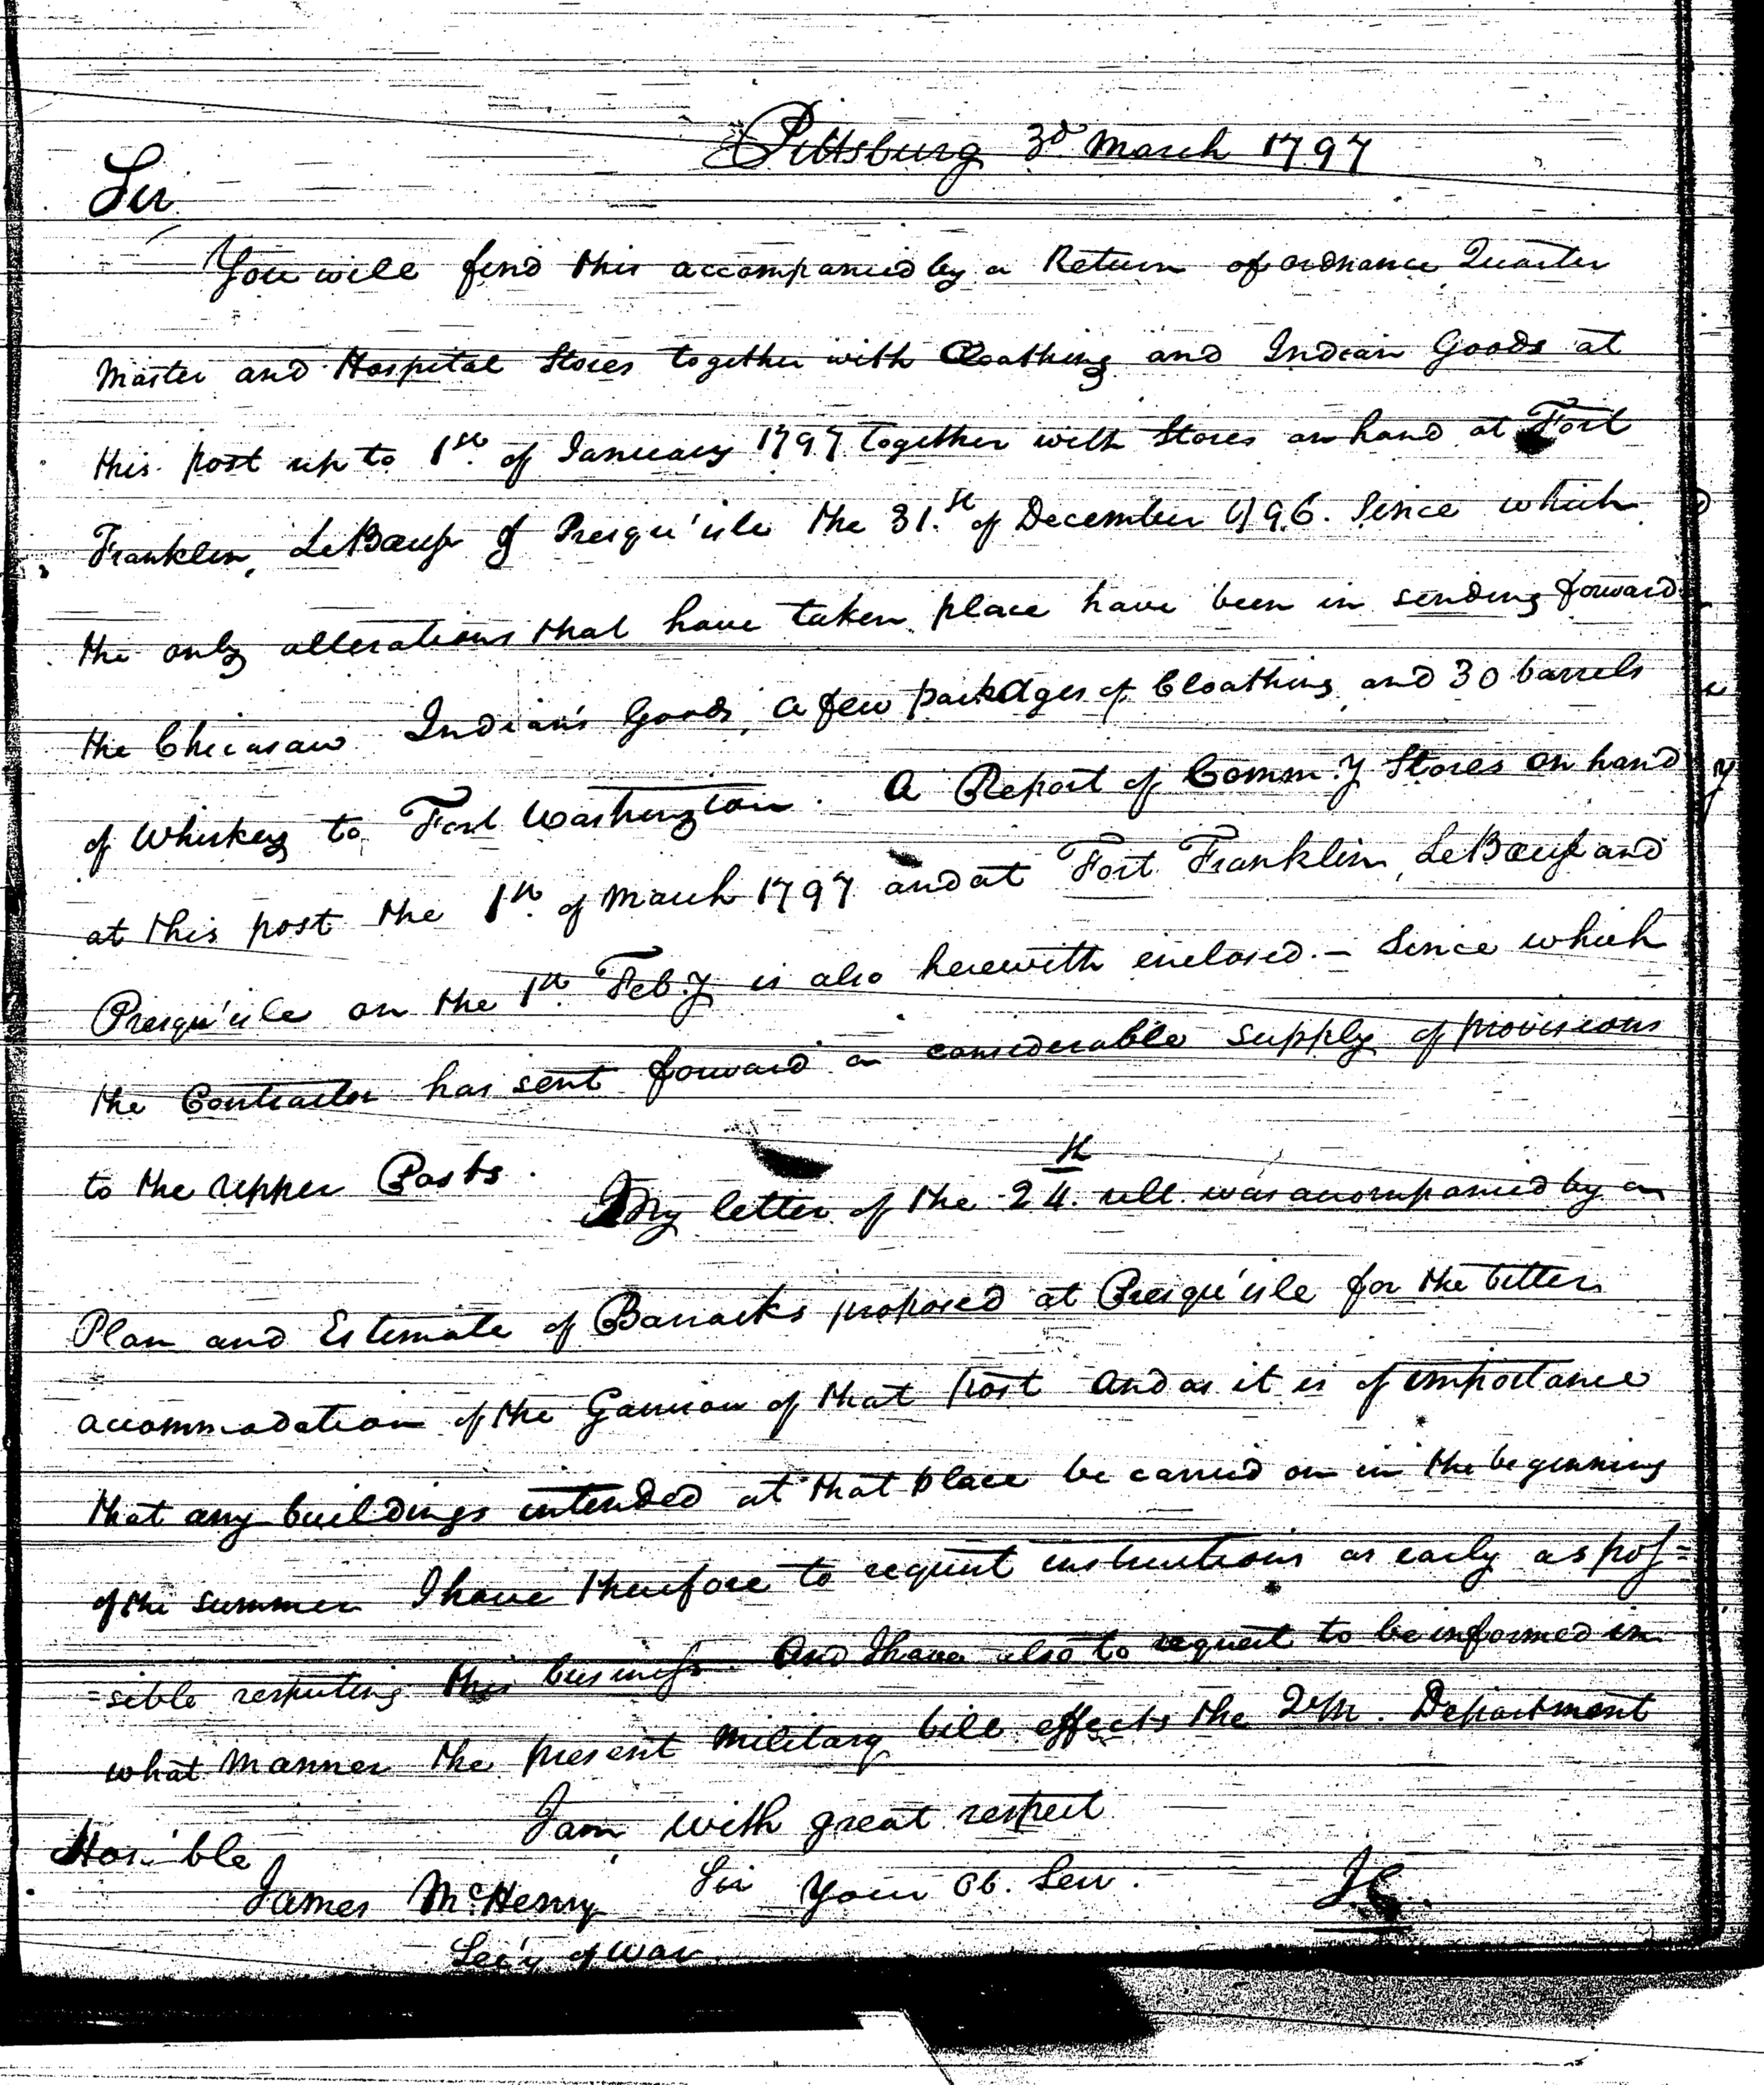 Pittsburg 3d March 1797
Sir
You will find this accompanied by a Return of ordnance Quarter
Master and Hospital Stores together with Cloathing and Indian Goods at
this post up to 1st of January 1797 together with Stores on hand at Fort
Franklin, LeBoeuf & Presqu'isle the 31.st of December 1796. Since which
the only alterations that have taken place have been in sending forward
the Chicasaw Indian's Goods, a few packages of Cloathing and 30 barrels
of Whiskey to Fort Washington. A Report of Comm.y Stores on hand
at this post the 1st of March 1797 and at Fort Franklin, LeBoeuf and
Presqu'isle on the 1st Feb.y is also herewith enclosed. – Since which
the Contractor has sent forward a considerable supply of provisions
to the upper Posts.
My letter of the 24.th ult. was accompanied by a
Plan and Estimate of Barracks proposed at Presqu'isle for the better
accommodation of the Garrison of that post and as it is of importance
that any buildings intended at that place be carried on in the beginning
of the summer I have therefore to request instructions as early as pos=
=sible respecting this business. And I have also to request to be informed in
what manner the present military bill effects the QrM. Department
I am with great respect
Sir Your Ob. Serv.
J.C.
Hon'ble
James McHenry
Sec'y of War